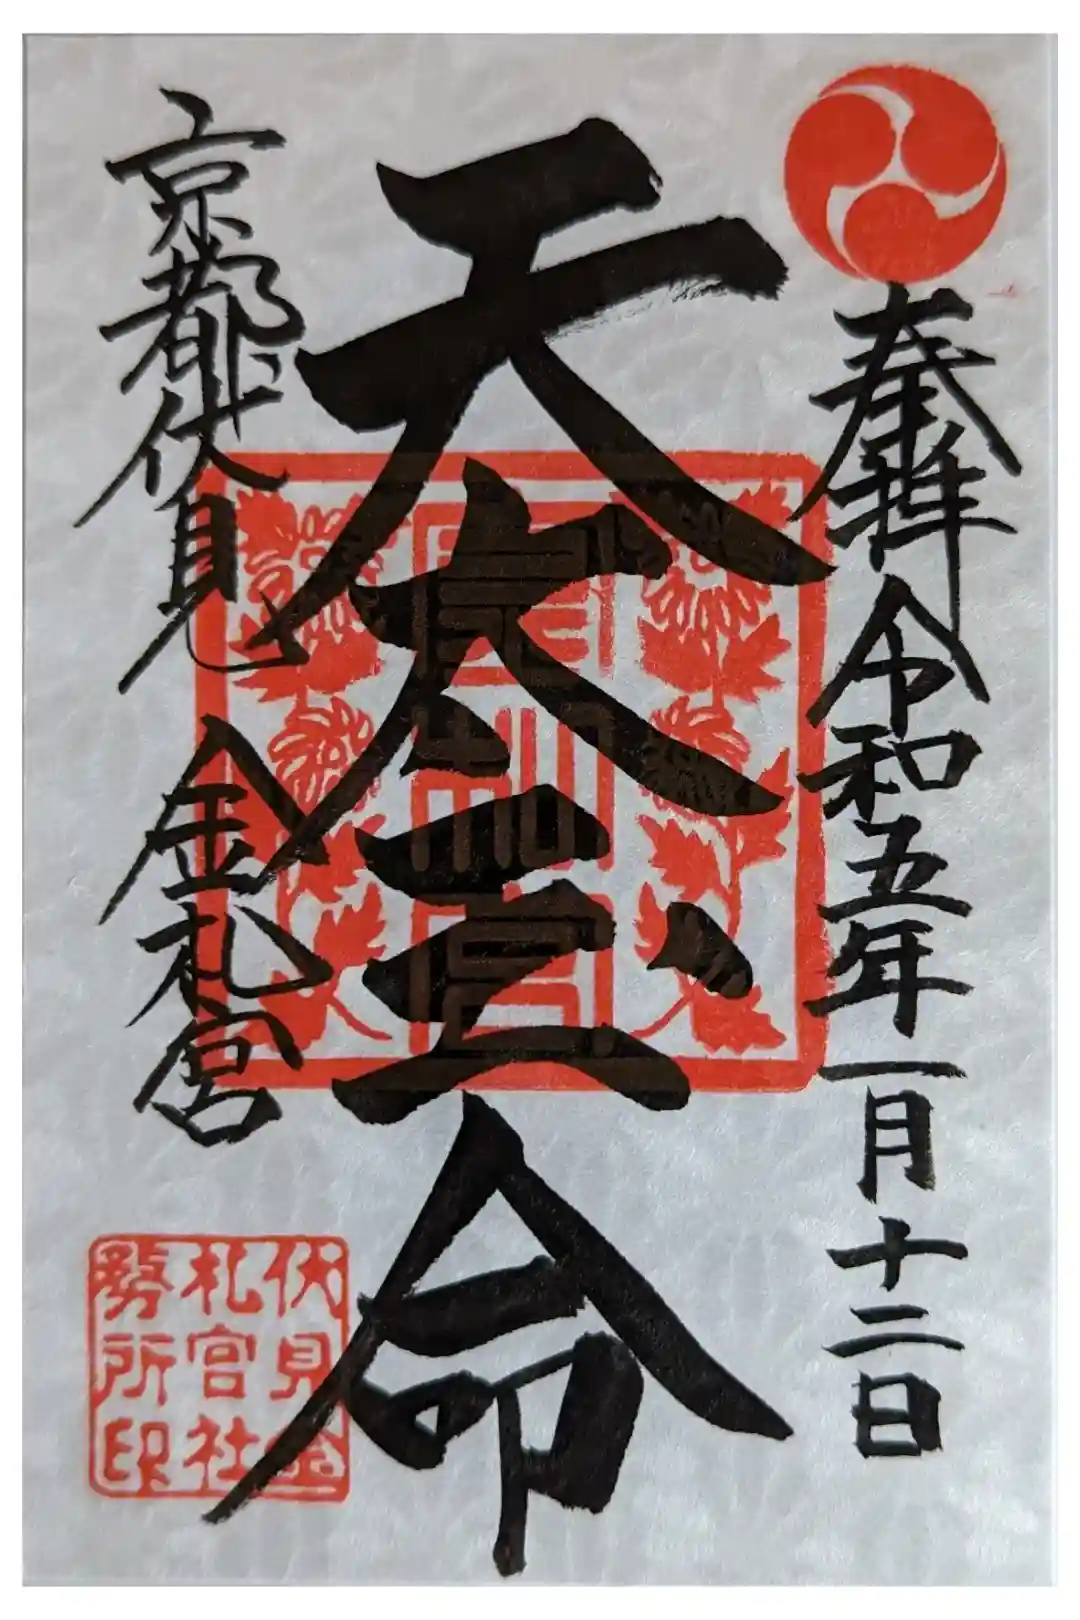 奉拝 令和五年一月十二日
天太玉命
京都伏見 金札宮
伏見金
札宮社
務所印